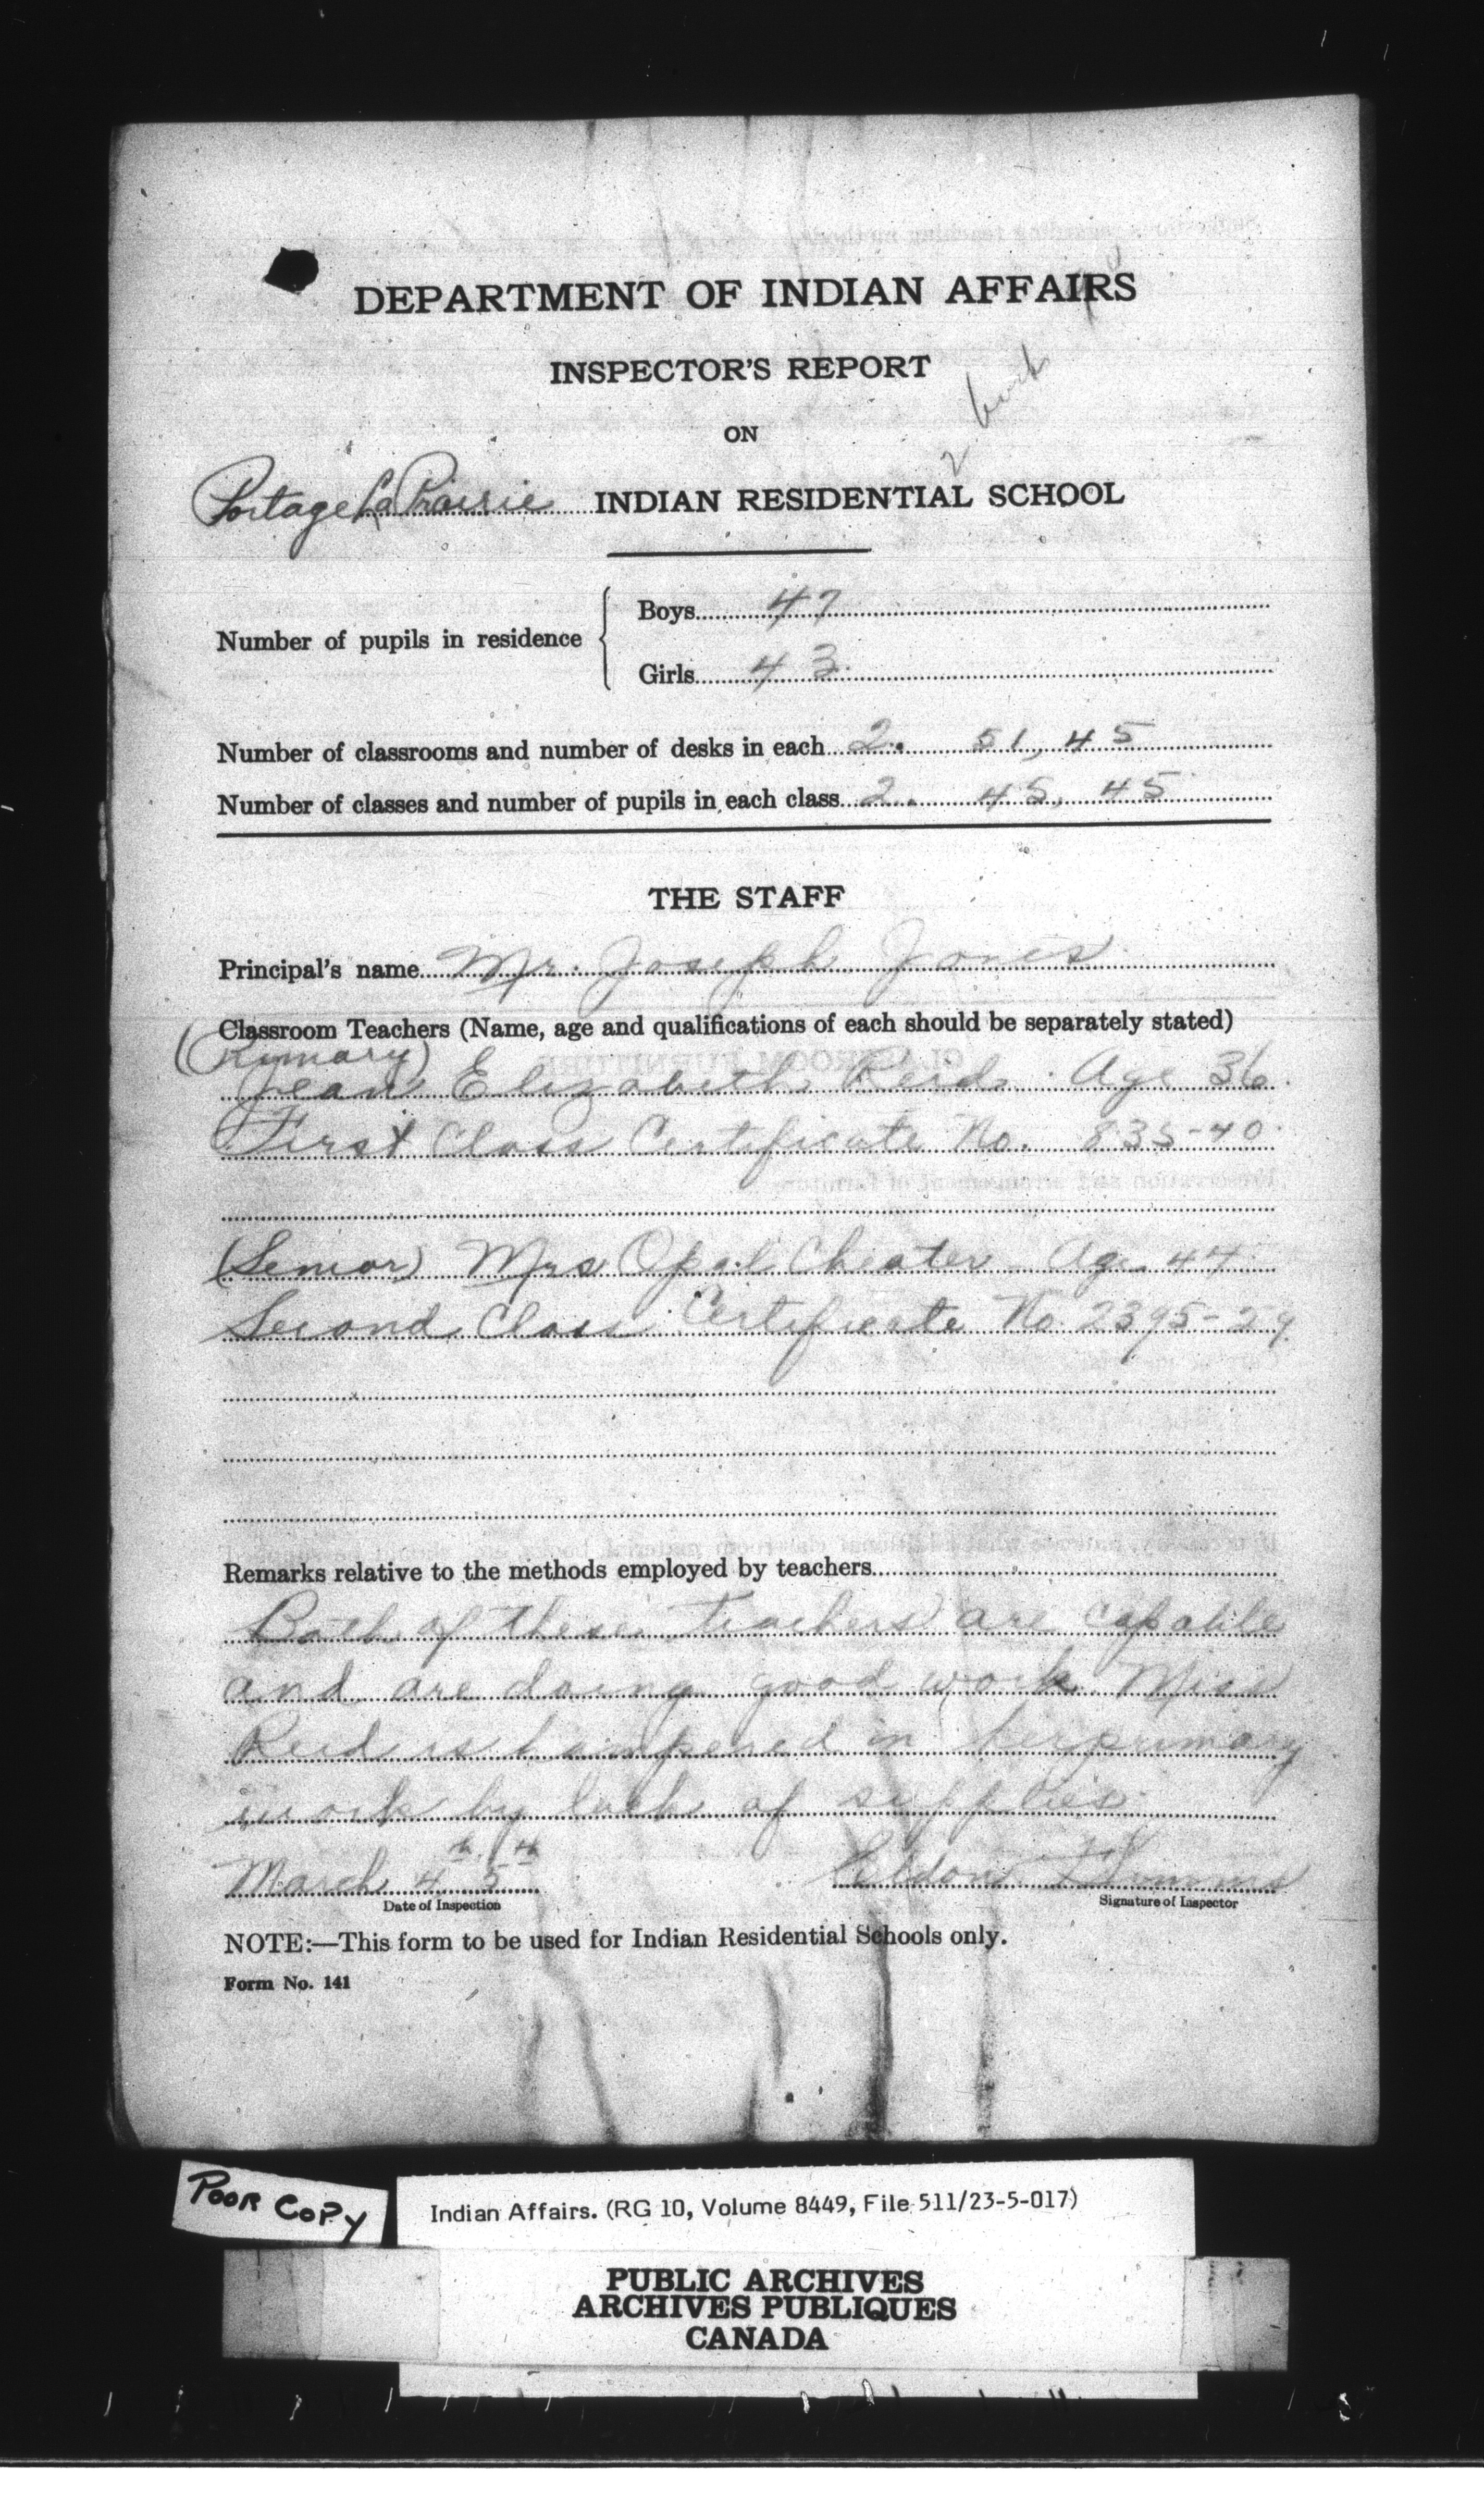 DEPARTMENT OF INDIAN AFFAIRS
INSPECTOR'S REPORT
ON
2
Portage La Prairie INDIAN RESIDENTIAL SCHOOL
Number of pupils in residence
Boys 47
Girls 43
Number of classrooms and number of desks in each 2. 51, 45
Number of classes and number of pupils in each class 2. 45, 45
THE STAFF
Principal's name Mr. Joseph Jones
Classroom Teachers (Name, age and qualifications of each should be separately stated)
(Primary)
Jean Elizabeth Reid. Age 36.
First Class Certificate No. 835-40.
(Senior) Mrs Opal Cheater Age 44
Second Class Certificate No. 2395-29.
Remarks relative to the methods employed by teachers
Both of these teachers are capable
and are doing good work. Miss
Reid is hampered in her primary
work by lack of supplies.
March 4th 5th Eldon
Date of Inspection Signature of Inspector
NOTE:—This form to be used for Indian Residential Schools only.
Form No. 141
POOR COPY
Indian Affairs. (RG 10, Volume 8449, File 511/23-5-017)
PUBLIC ARCHIVES
ARCHIVES PUBLIQUES
CANADA